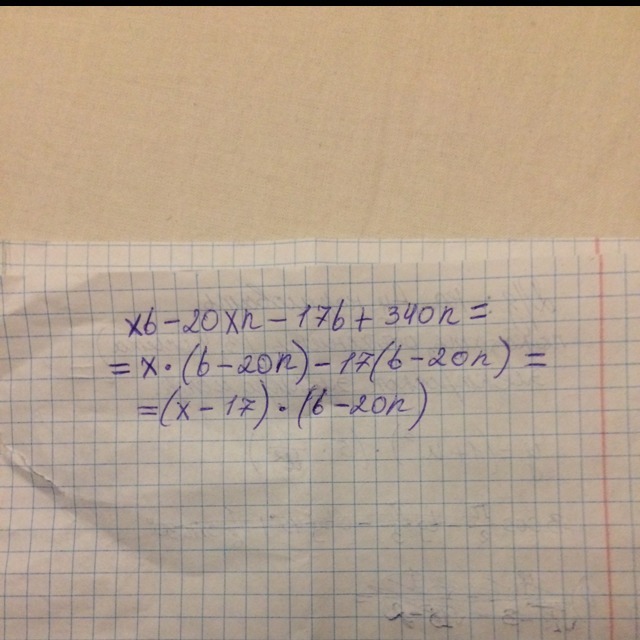 xb-20xn-17b+340n=
=x·(b-20n)-17(b-20n)=
=(x-17)·(b-20n)